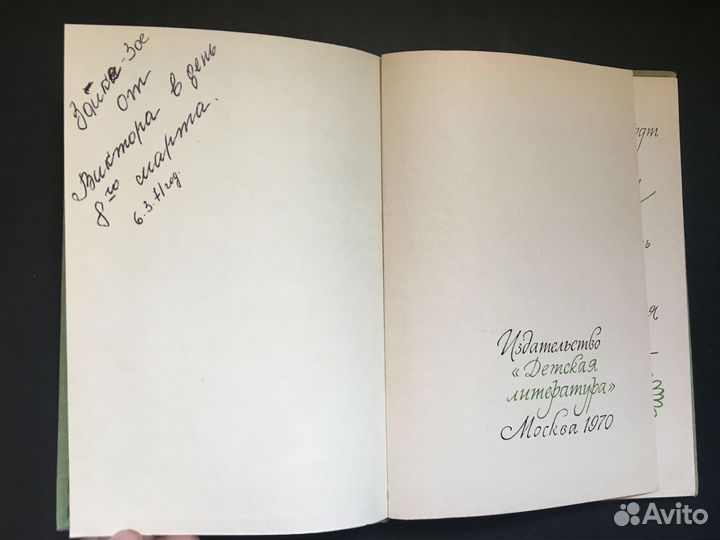 Зайке-Зое
от
Виктора в день
8-го марта.
6.3.71 год.
Издательство
«Детская
литература»
Москва 1970
Avito